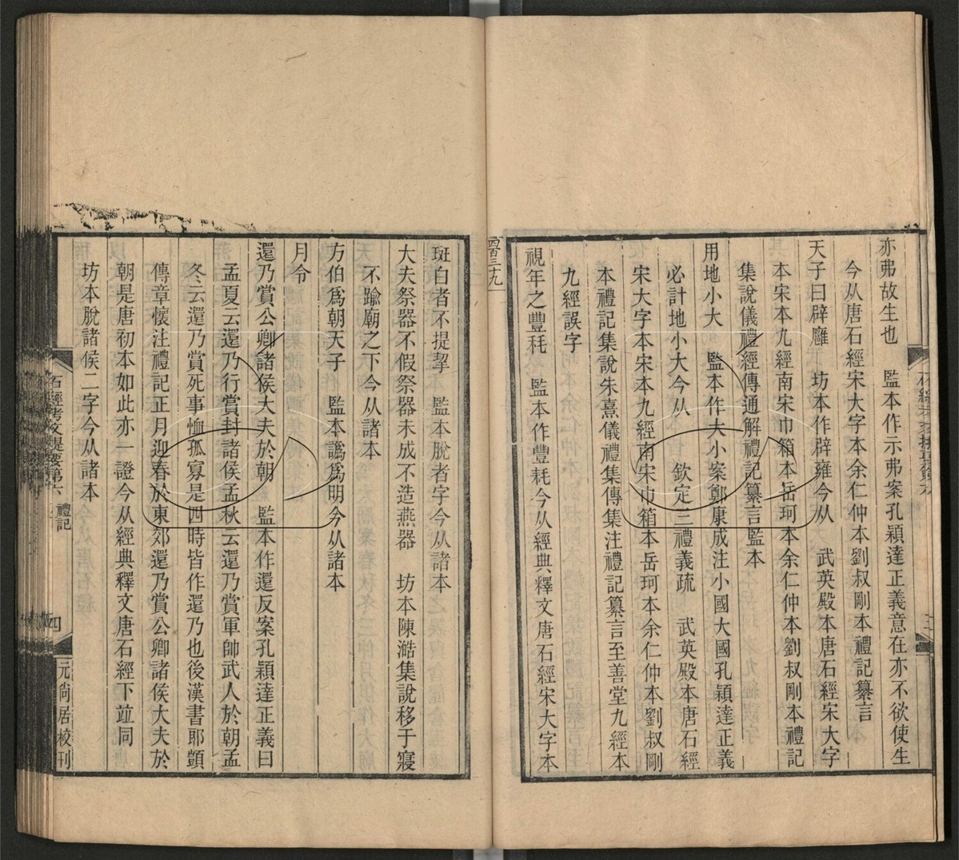 亦弗故生也　監本作示弗案孔穎達正義意在亦不欲使生
今从唐石經宋大字本余仁仲本劉叔剛本禮記纂言
天子曰辟廱　坊本作辟雍今从　武英殿本唐石經宋大字
本宋本九經南宋巾箱本岳珂本余仁仲本劉叔剛本禮記
集說儀禮經傳通解禮記纂言監本
用地小大　監本作大小案鄭康成注小國大國孔穎達正義
必計地小大今从　欽定三禮義疏　武英殿本唐石經
宋大字本宋本九經南宋巾箱本岳珂本余仁仲本劉叔剛
本禮記集說朱熹儀禮集傳集注禮記纂言至善堂九經本
九經誤字
視年之豐秏　監本作豐耗今从經典釋文唐石經宋大字本
四百三十九
斑白者不提挈　監本脫者字今从諸本
大夫祭器不假祭器未成不造燕器　坊本陳澔集說移于寢
不踰廟之下今从諸本
方伯爲朝天子　監本譌爲明今从諸本
月令
還乃賞公卿諸侯大夫於朝　監本作還反案孔穎達正義曰
孟夏云還乃行賞封諸侯孟秋云還乃賞軍帥武人於朝孟
冬云還乃賞死事恤孤寡是四時皆作還乃也後漢書郎顗
傳章懷注禮記正月迎春於東郊還乃賞公卿諸侯大夫於
朝是唐初本如此亦一證今从經典釋文唐石經下竝同
坊本脫諸侯二字今从諸本
石經考文提要第六　禮記
四
元尚居校刊